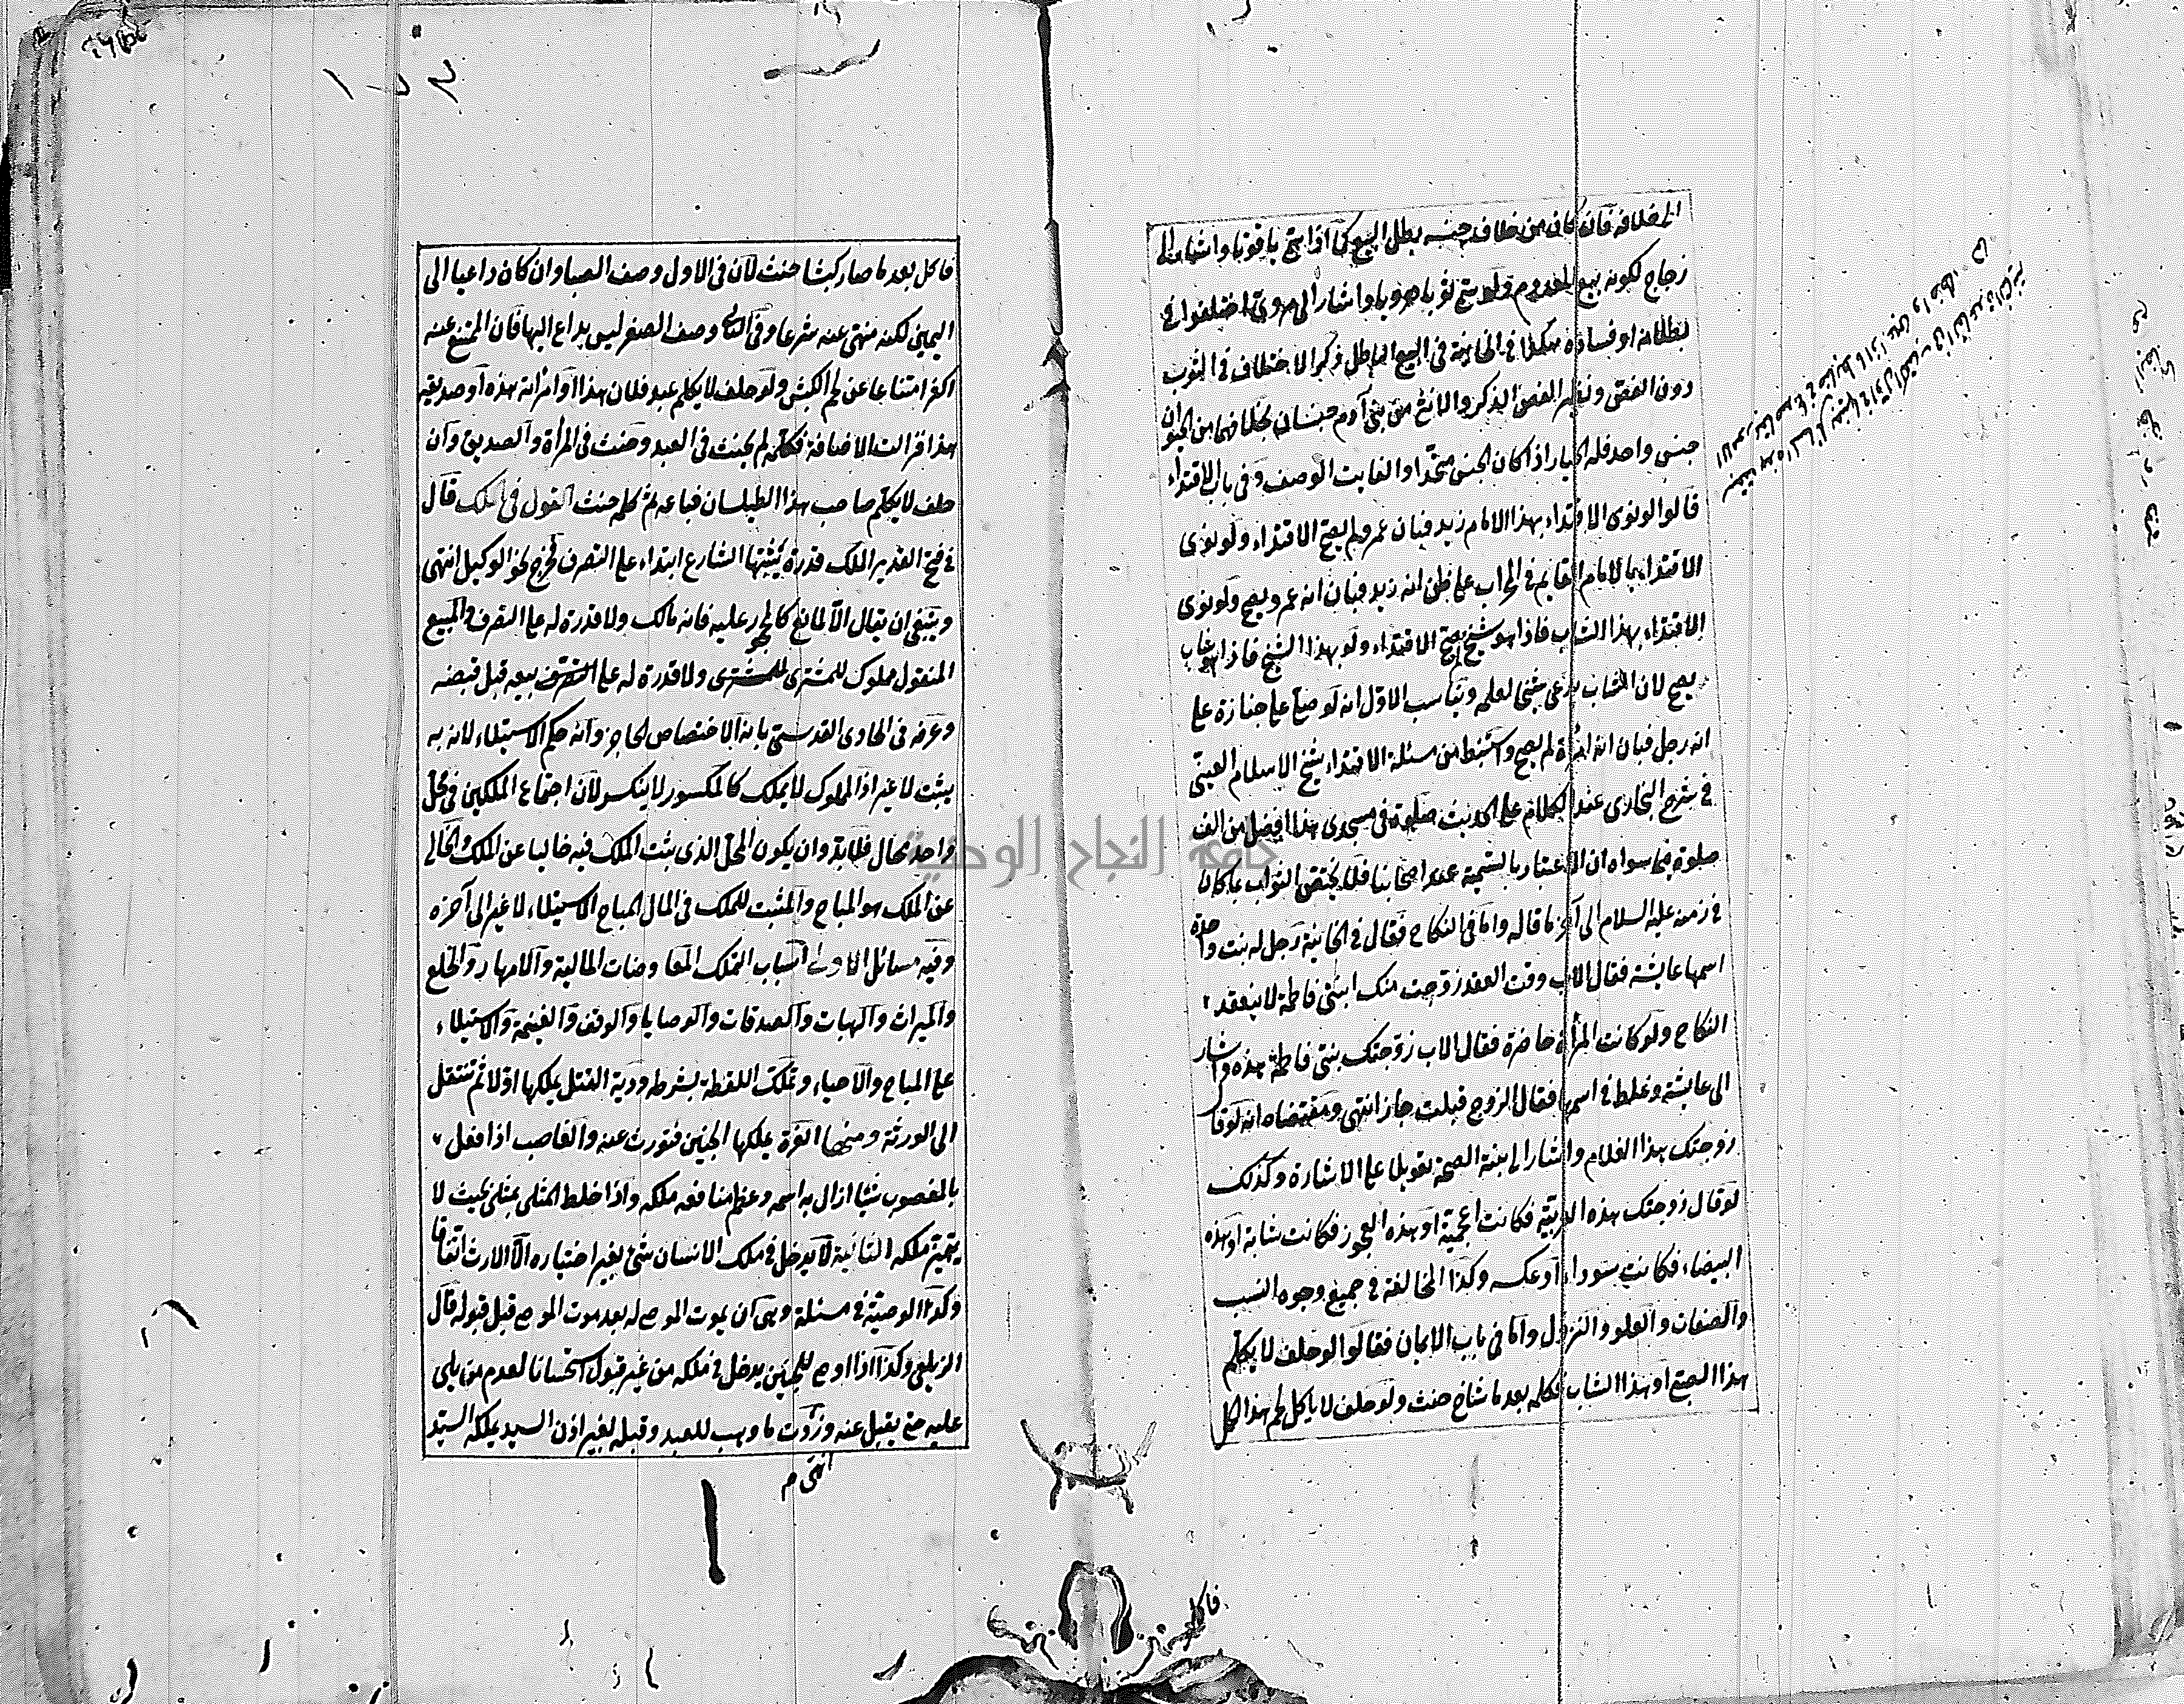 الى خلافه فان كان من خلاف جنسه بطل البيع كما اذا بيع ياقوتا واشار الى
زجاج لكونه بيع المعدوم ولو بيع ثوبا هرويا واشار الى مروى اختلفوا فى
بطلانه او فساده هكذا فى الخانية فى البيع الباطل ذكر الاختلاف فى الثوب
دون الفص ونظير الفص الذكر والانثى من بنى آدم جنسان بخلافهما من الحيوان
جنس واحد فله الخيار اذا كان الجنس متحدا والفايت الوصف وفى باب الاقتداء
قالوا لو نوى الاقتداء بهذا الامام زيد فبان عمرو لم يصح الاقتداء ولو نوى
الاقتداء بالامام القايم فى المحراب على ظن انه زيد فبان انه عمرو يصح ولو نوى
الاقتداء بهذا الشاب فاذا هو شيخ يصح الاقتداء ولو بهذا الشيخ فاذا هو شاب
يصح لان الشاب يدعى شيخا لعلمه ويناسب الاول انه لو صلى على جنازة على
انه رجل فبان انه امرأة لم يصح واستنبط من مسئلة الاقتداء شيخ الاسلام العينى
فى شرح البخارى عند الكلام على الحديث صلوة فى مسجدى هذا افضل من الف
صلوة فيما سواه ان الاعتبار بالتسمية عند اصحابنا فلا يختص الثواب بما كان
فى زمنه عليه السلام الى آخر ما قاله واما فى النكاح فقال فى الخانية رجل له بنت واحدة
اسمها عايشة فقال الاب وقت العقد زوجت منك ابنتى فاطمة لا ينعقد
النكاح ولو كانت المرأة حاضرة فقال الاب زوجتك بنتى فاطمة هذه واشار
الى عايشة وغلط فى اسمها فقال الزوج قبلت جاز انتهى ومقتضاه انه لو قال
زوجتك هذا الغلام واشار الى بنته الصحة تعويلا على الاشارة وكذلك
لو قال زوجتك هذه العربية فكانت اعجمية او هذه العجوز فكانت شابة او هذه
البيضاء فكانت سوداء او عكسه وكذا المخالفة فى جميع وجوه النسب
والصفات والعلو والنزول واما فى باب الايمان فقالوا لو حلف لا يكلم
هذا الصبى او هذا الشاب فكلمه بعد ما شاخ حنث ولو حلف لا ياكل لحم هذا الحمل
فاكل
فاكل بعد ما صار كبشا حنث لان فى الاول وصف الصبا وان كان داعيا الى
اليمين لكنه منهى عنه شرعا وفى الثانى وصف الصغر ليس بداع اليها فان الممتنع عنه
اكثر امتناعا عن لحم الكبش ولو حلف لا يكلم عبد فلان هذا او امرأته هذه او صديقه
هذا فزالت الاضافة فكلمه لم يحنث فى العبد وحنث فى المرأة والصديق وان
حلف لا يكلم صاحب هذا الطيلسان فباعه ثم كلمه حنث القول فى الملك قال
فى فتح القدير الملك قدرة يثبتها الشارع ابتداء على التصرف فخرج نحو الوكيل انتهى
وينبغى ان يقال الا لمانع كالمحجور عليه فانه مالك ولا قدرة له على التصرف والمبيع
المنقول مملوك للمشترى ولا قدرة له على بيعه قبل قبضه
وعرفه فى الحاوى القدسى بانه الاختصاص الحاجز وانه حكم الاستيلاء لانه به
يثبت لا غير اذ المملوك لا يملك كالمكسور لا ينكسر لان اجتماع الملكين فى محل
واحد محال فلا بد وان يكون المحل الذى يثبت الملك فيه خاليا عن الملك والخالى
عن الملك هو المباح والمثبت للملك فى المال المباح الاستيلاء لا غير الى آخره
وفيه مسائل الاولى اسباب التملك المعاوضات المالية والامهار والخلع
والميراث والهبات والصدقات والوصايا والوقف والغنيمة والاستيلاء
على المباح والاحياء وتملك اللقطة بشرطه ودية القتل يملكها اولا ثم تنتقل
الى الورثة ومنها الغرة يملكها الجنين فتورث عنه والغاصب اذا فعل
بالمغصوب شيئا ازال به اسمه وعظم منافعه ملكه واذا خلط المثلى بمثلى بحيث لا
يتميز ملكه الثانية لا يدخل فى ملك الانسان شئ بغير اختياره الا الارث اتفاقا
وكذا الوصية فى مسئلة وهى ان يموت الموصى له بعد موت الموصى قبل قبوله قال
الزيلعى وكذا اذا اوصى للجنين يدخل فى ملكه من غير قبول استحسانا لعدم من يلى
عليه حتى يقبل عنه وزدت ما وهب للعبد وقبله بغير اذن السيد يملكه السيد